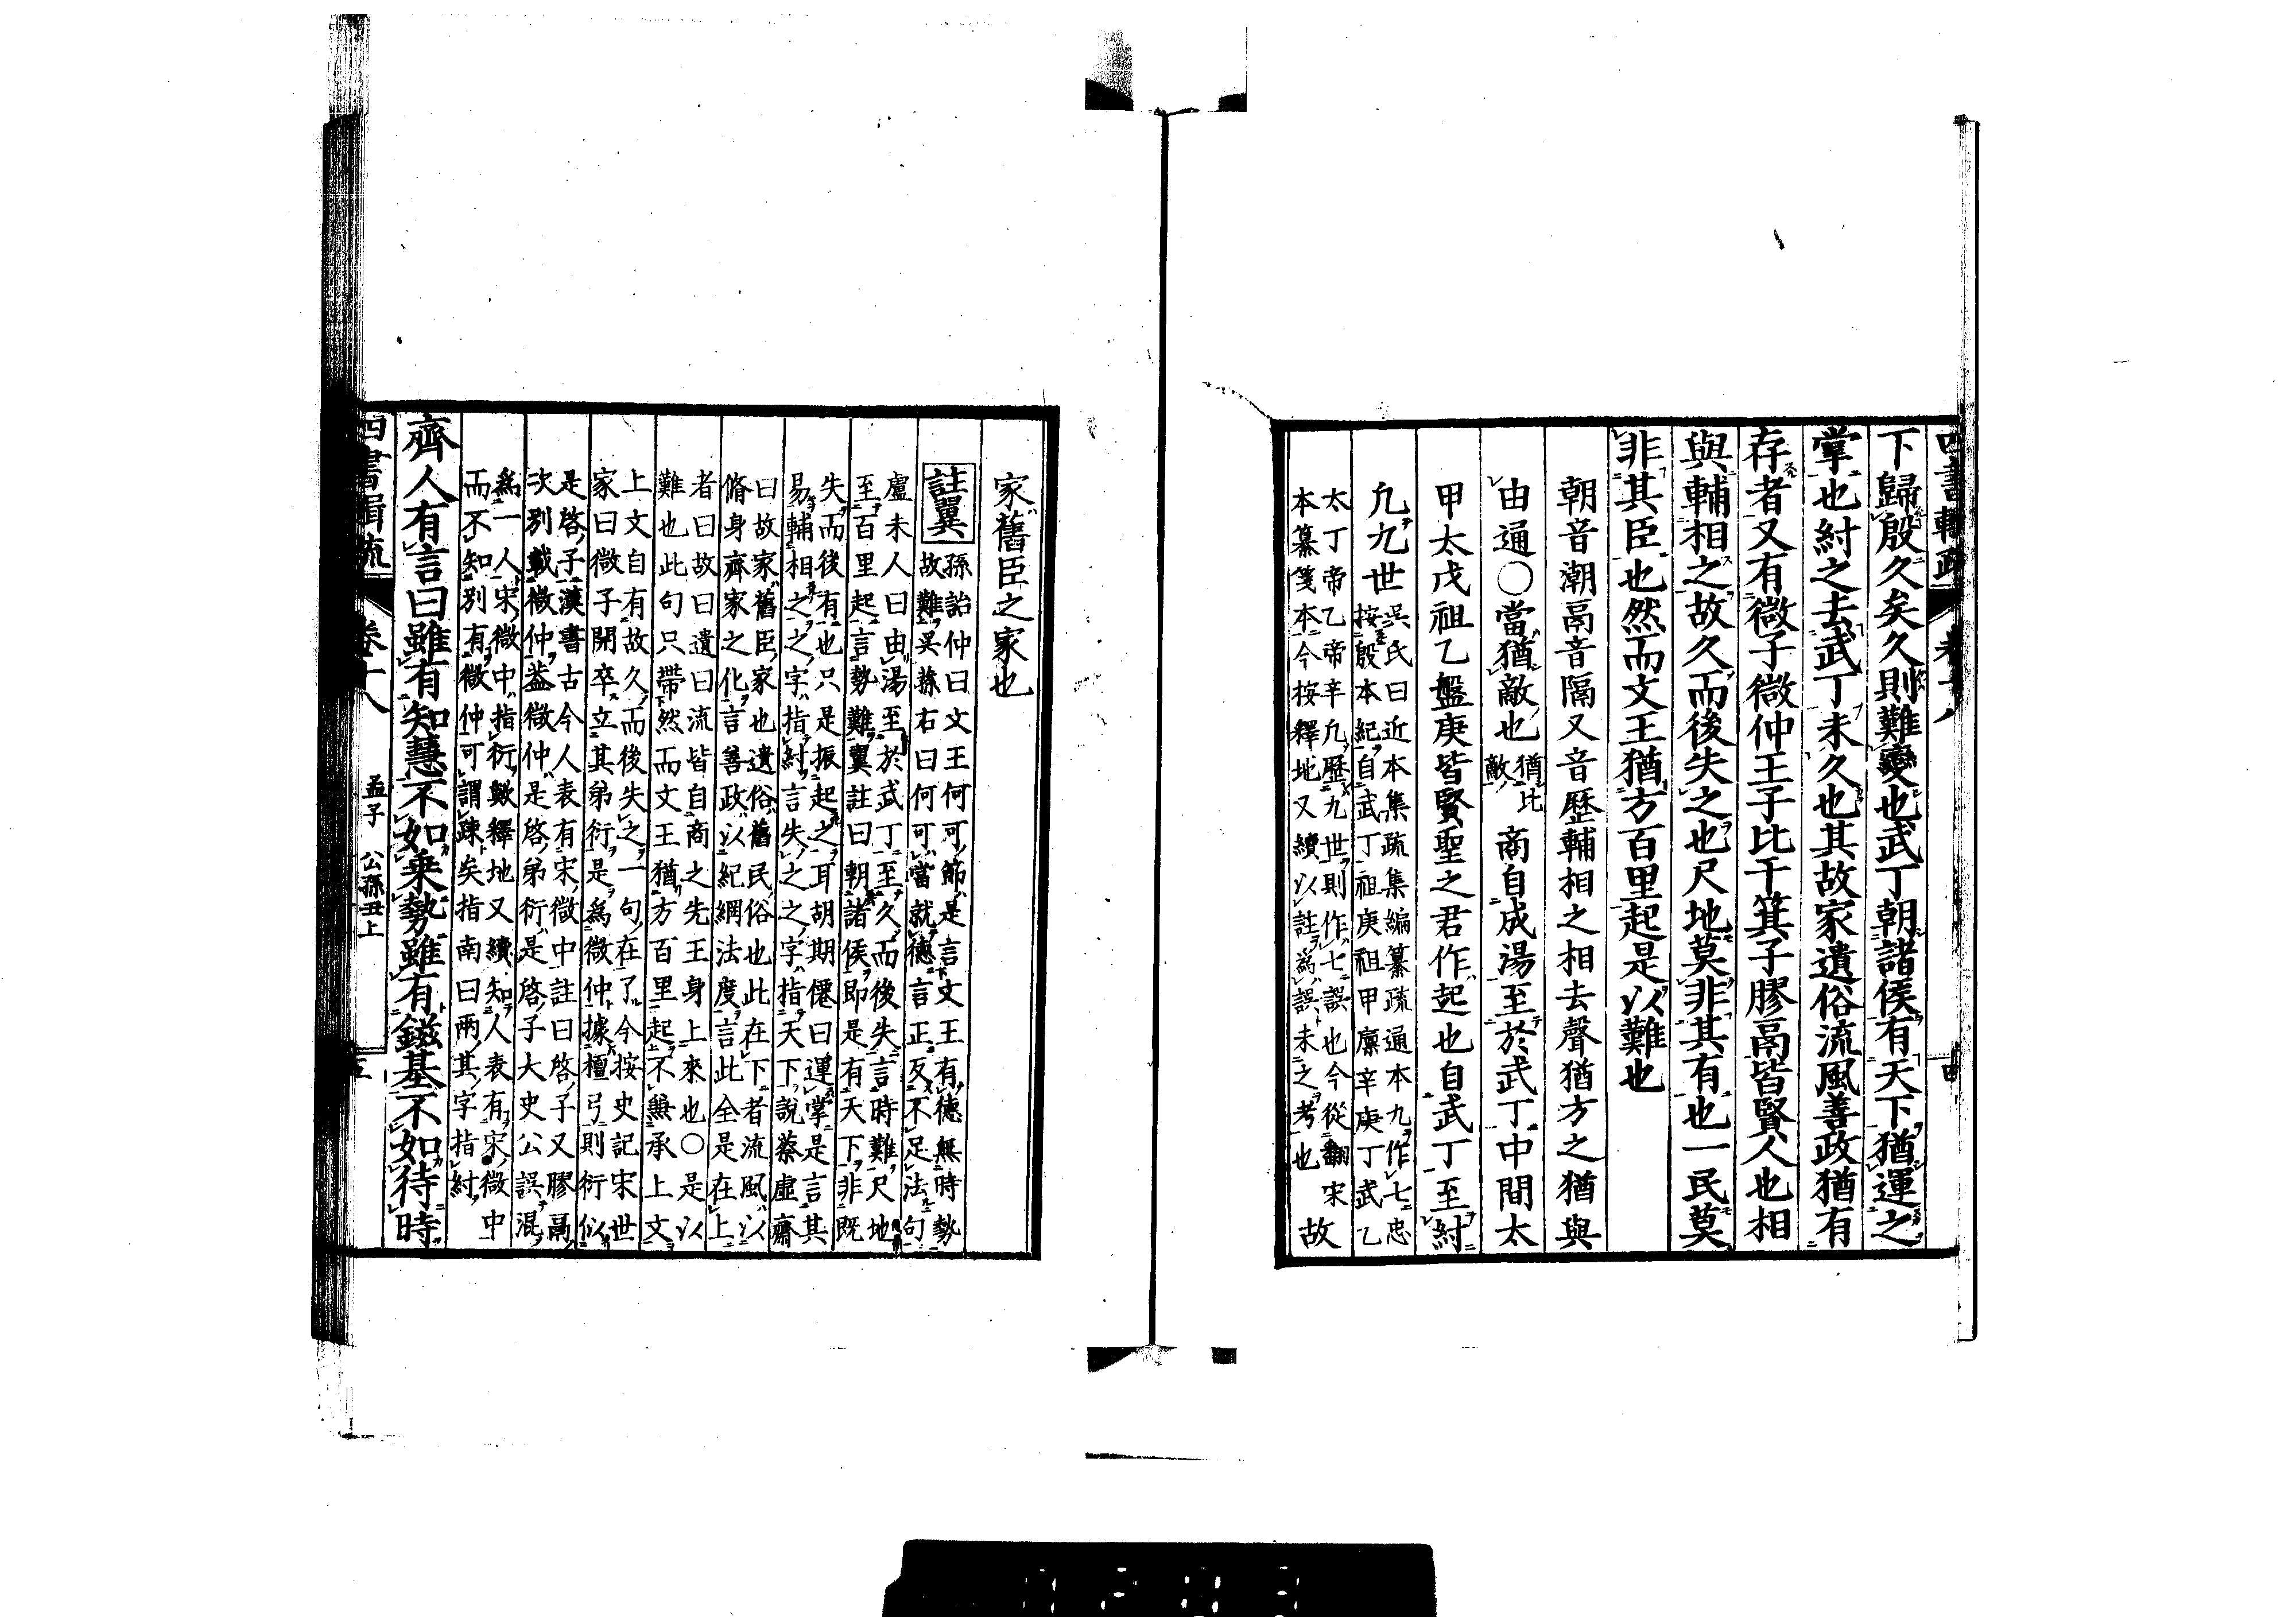 下歸殷久矣久則難變也武丁朝諸侯有天下猶運之
掌也紂之去武丁未久也其故家遺俗流風善政猶有
存者又有微子微仲王子比干箕子膠鬲皆賢人也相
與輔相之故久而後失之也尺地莫非其有也一民莫
非其臣也然而文王猶方百里起是以難也
朝音潮鬲音隔又音歷輔相之相去聲猶方之猶與
由通〇當猶敵也猶比敵商自成湯至於武丁中間太
甲太戊祖乙盤庚皆賢聖之君作起也自武丁至紂
凡九世吳氏曰近本集疏集編纂疏通本九作七忠
按殷本紀自武丁祖庚祖甲廩辛庚丁武乙
太丁帝乙帝辛凡歷九世則作七誤也今從翻宋
本纂箋本今按釋地又續以註為誤未之考也故
家舊臣之家也
註翼孫詒仲曰文王何可節是言文王有德無時勢
故難吳蓀右曰何可當就德言正反不足法句
盧未人曰由湯至於武丁至久而後失言時難尺地
至百里起言勢難翼註曰朝諸侯即是有天下非既
失而後有也只是振起之耳胡期僊曰運掌是言其
易輔相之之字指紂言失之之字指天下說蔡虛齋
曰故家舊臣家也遺俗舊民俗也此在下者流風以
脩身齊家之化言善政以紀綱法度言此全是在上
者曰故曰遺曰流皆自商之先王身上來也〇是以
難也此句只帶然而文王猶方百里起不無承上文
上文自有故久而後失之一句在了今按史記宋世
家曰微子開卒立其弟衍是為微仲據檀弓則衍似
是啓子漢書古今人表有宋微中註曰啓子又膠鬲
次別載微仲蓋微仲是啓弟衍是啓子大史公誤混
為一人宋微中指衍歟釋地又續知人表有宋微中
而不知別有微仲可謂疎矣指南曰兩其字指紂
齊人有言曰雖有知慧不如乘勢雖有鎡基不如待時
卷十八
孟子 公孫丑上